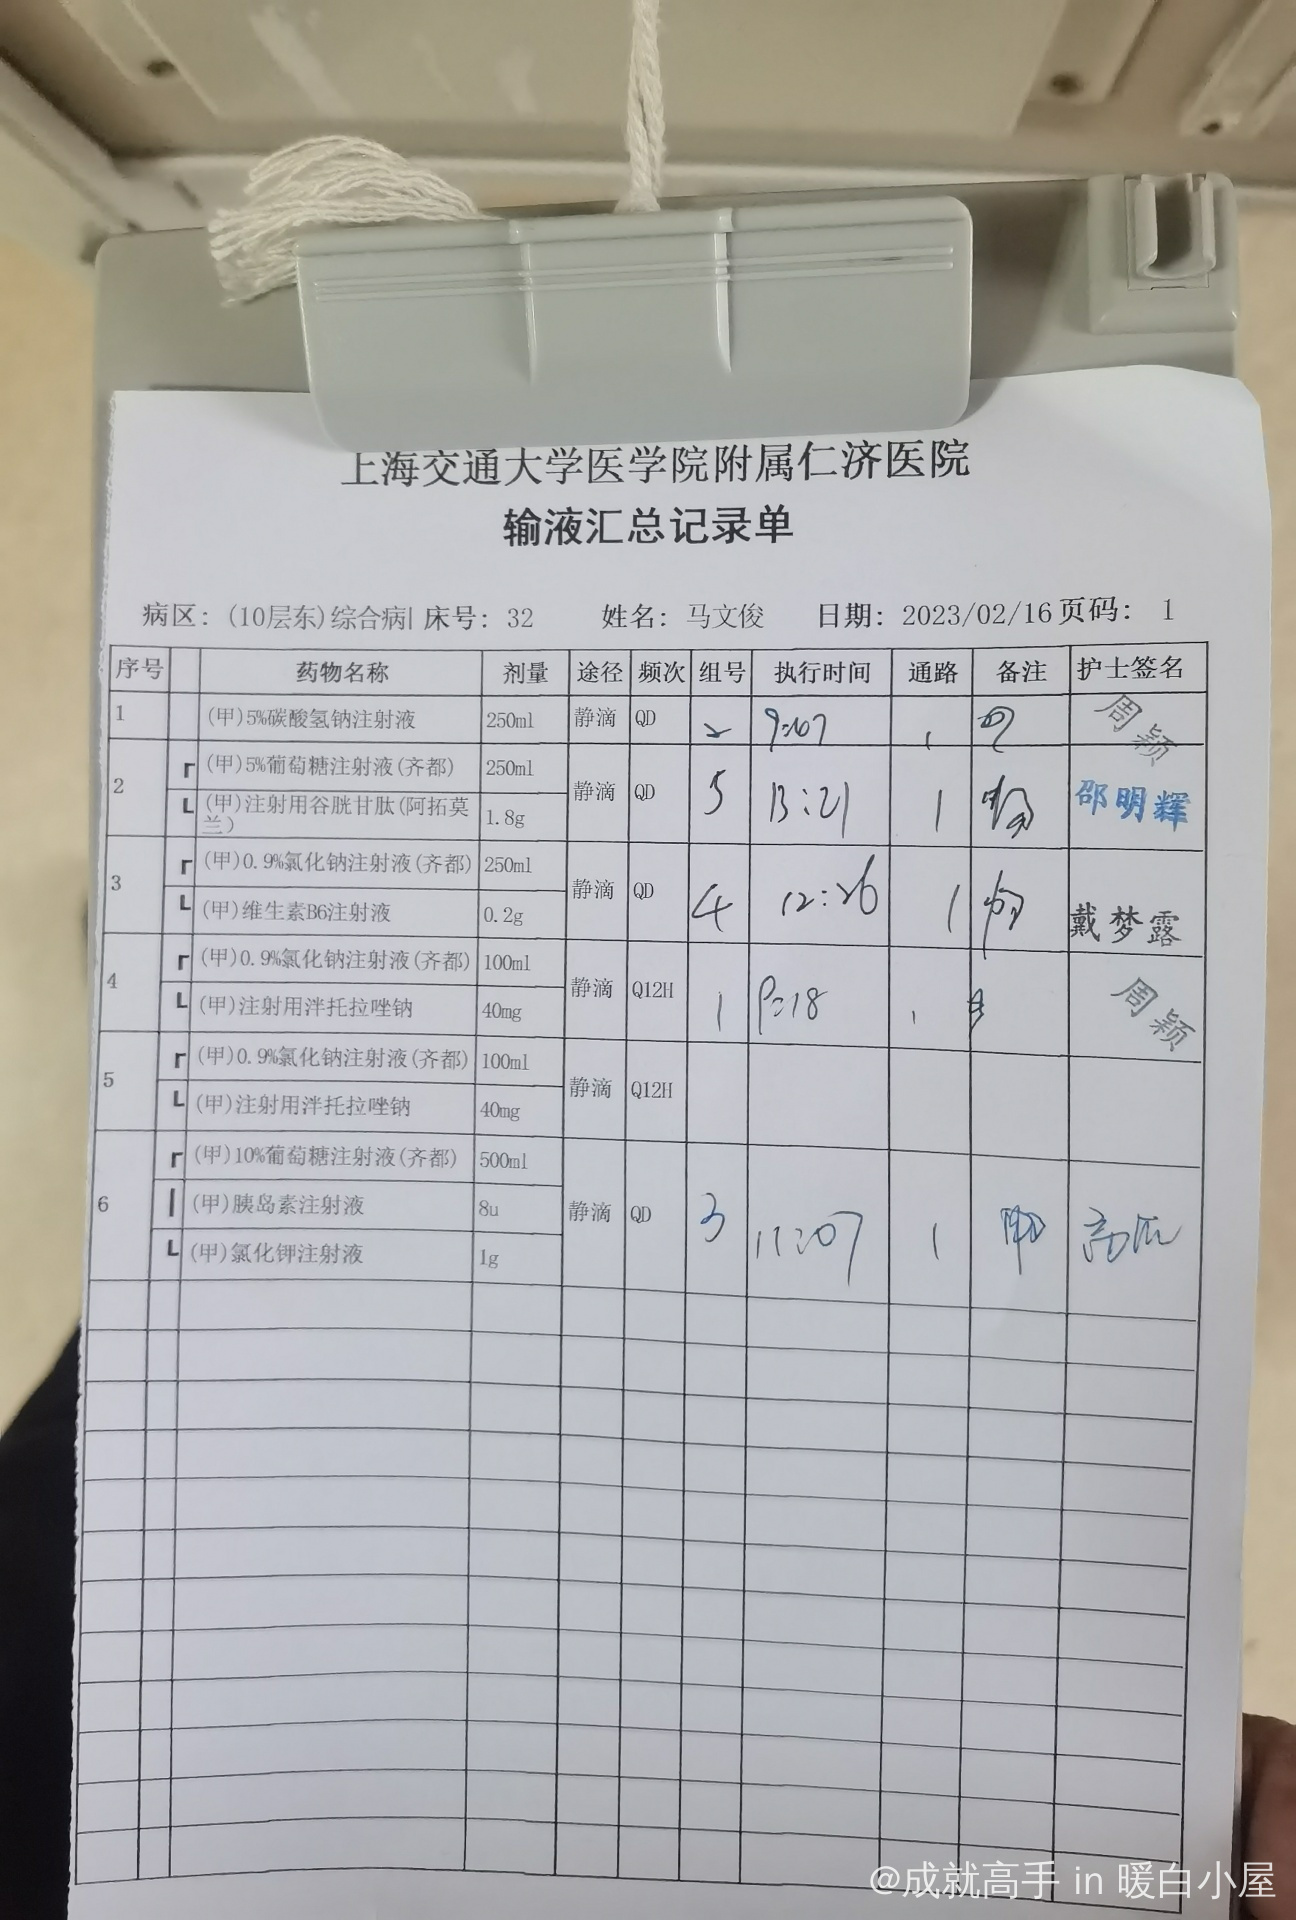 上海交通大学医学院附属仁济医院
输液汇总记录单
病区：(10层东)综合病 床号：32 姓名：马文俊 日期：2023/02/16 页码：1
序号 药物名称 剂量 途径 频次 组号 执行时间 通路 备注 护士签名
1 (甲)5%碳酸氢钠注射液 250ml 静滴 QD 2 9:07 1 周颖
2 ┏ (甲)5%葡萄糖注射液(齐都) 250ml 静滴 QD 5 13:21 1 邵明辉
┗ (甲)注射用谷胱甘肽(阿拓莫
兰) 1.8g
3 ┏ (甲)0.9%氯化钠注射液(齐都) 250ml 静滴 QD 4 12:26 1 戴梦露
┗ (甲)维生素B6注射液 0.2g
4 ┏ (甲)0.9%氯化钠注射液(齐都) 100ml 静滴 Q12H 1 8:18 周颖
┗ (甲)注射用泮托拉唑钠 40mg
5 ┏ (甲)0.9%氯化钠注射液(齐都) 100ml 静滴 Q12H
┗ (甲)注射用泮托拉唑钠 40mg
6 ┏ (甲)10%葡萄糖注射液(齐都) 500ml 静滴 QD 3 11:07 1
┃ (甲)胰岛素注射液 8u
┗ (甲)氯化钾注射液 1g
@成就高手 in 暖白小屋